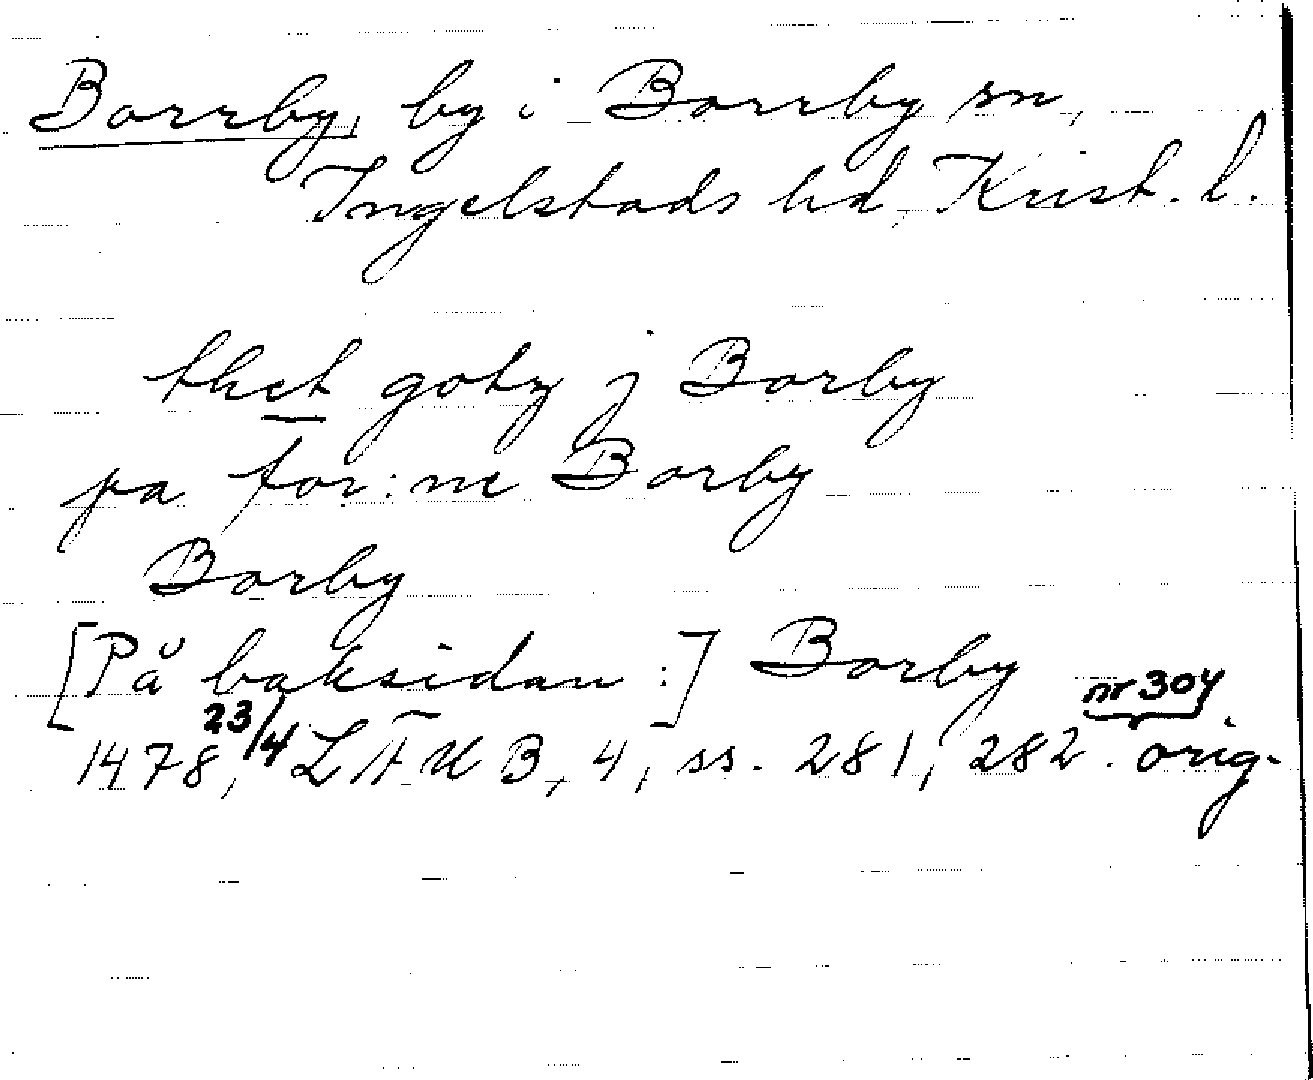 Borrby, by i Borrby sn,
Ingelstads hd, Krist. l.
thet gotz j Borby
pa for:ne Borby
Borby
[På baksidan:] Borby
1478, 23/4 LÄUB, 4, ss. 281, 282. nr 304 orig.